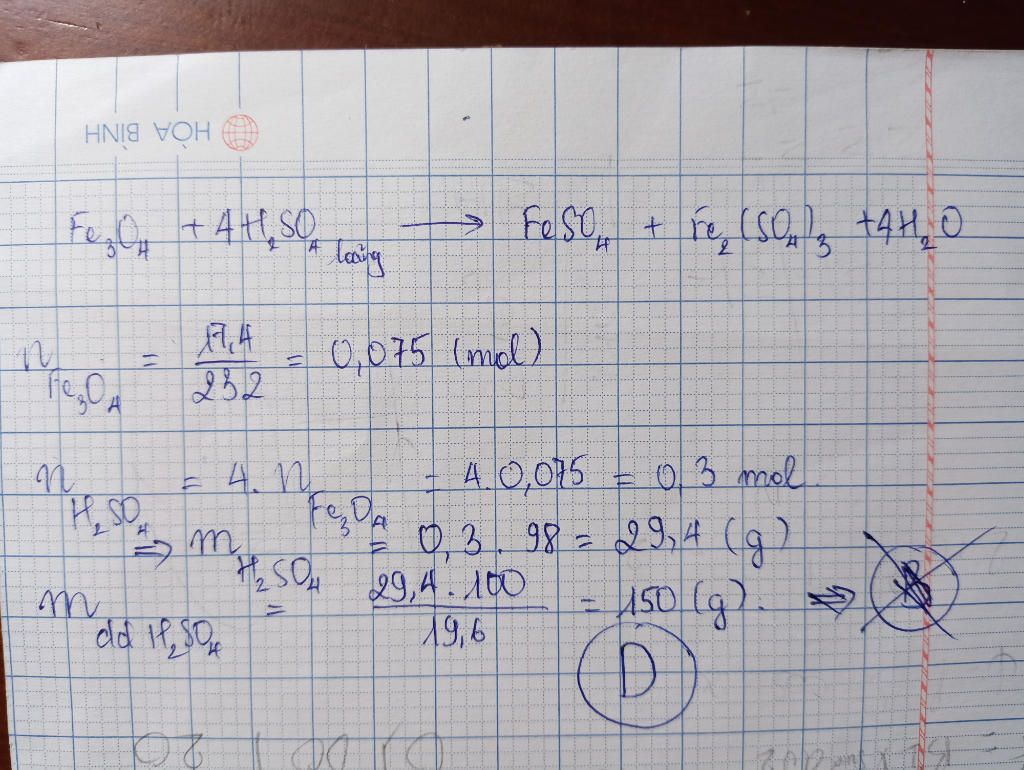 HÒA BÌNH
Fe₃O₄ + 4H₂SO₄ loãng ⟶ FeSO₄ + Fe₂(SO₄)₃ + 4H₂O
n Fe₃O₄ = 17,4/232 = 0,075 (mol)
n H₂SO₄ = 4. n Fe₃O₄ = 4.0,075 = 0,3 mol.
⇒ m H₂SO₄ = 0,3 . 98 = 29,4 (g)
m dd H₂SO₄ = 29,4.100/19,6 = 150 (g). ⇒
D